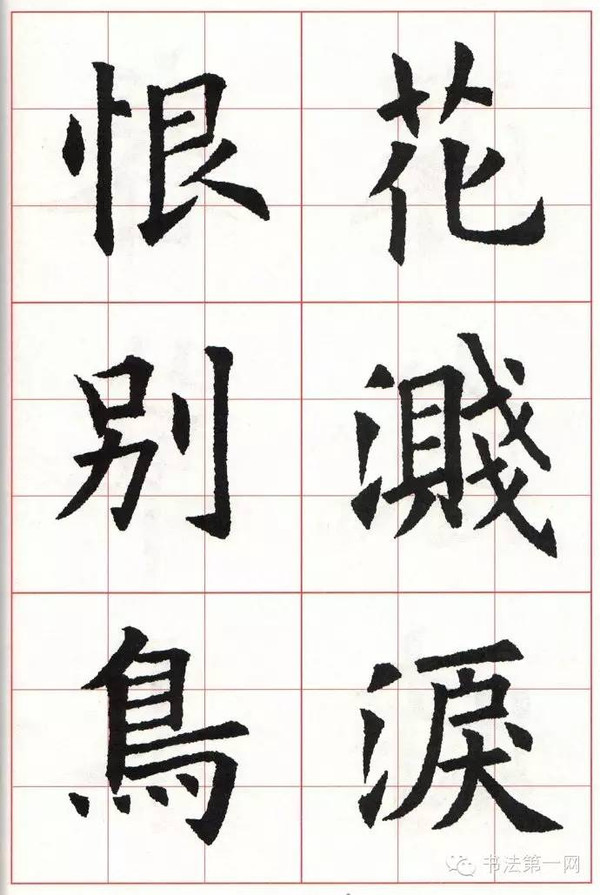 花濺淚
恨別鳥
书法第一网